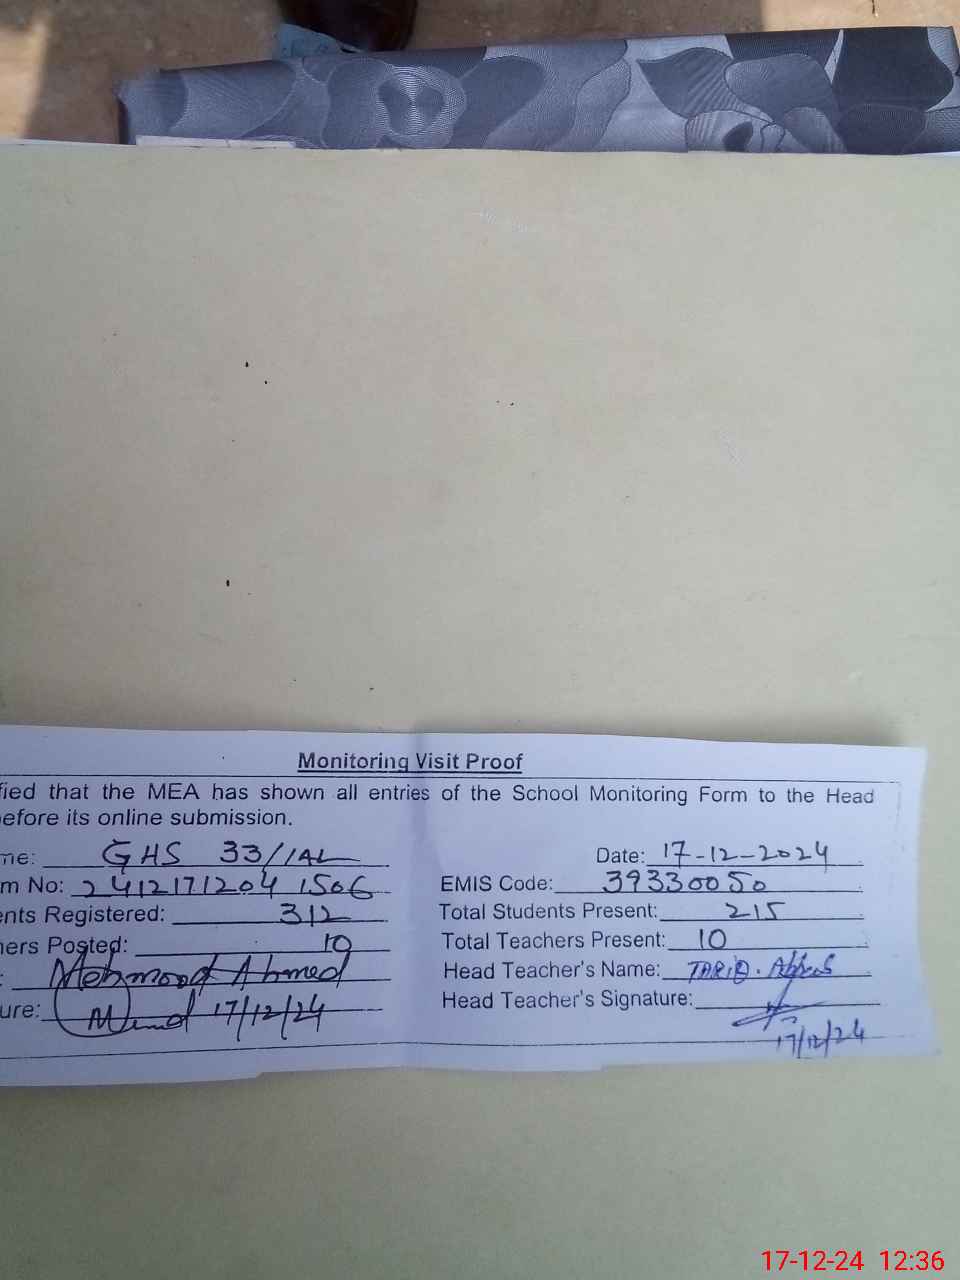 Monitoring Visit Proof
fied that the MEA has shown all entries of the School Monitoring Form to the Head
efore its online submission.
me: GHS 33/1AL Date: 17-12-2024
m No: 2412171204 1506 EMIS Code: 39330050
ents Registered: 312 Total Students Present: 215
hers Posted: 10 Total Teachers Present: 10
: Mehmood Ahmed Head Teacher's Name: TARIQ. Abbas
ure: 17/12/24 Head Teacher's Signature:
17/12/24
17-12-24 12:36